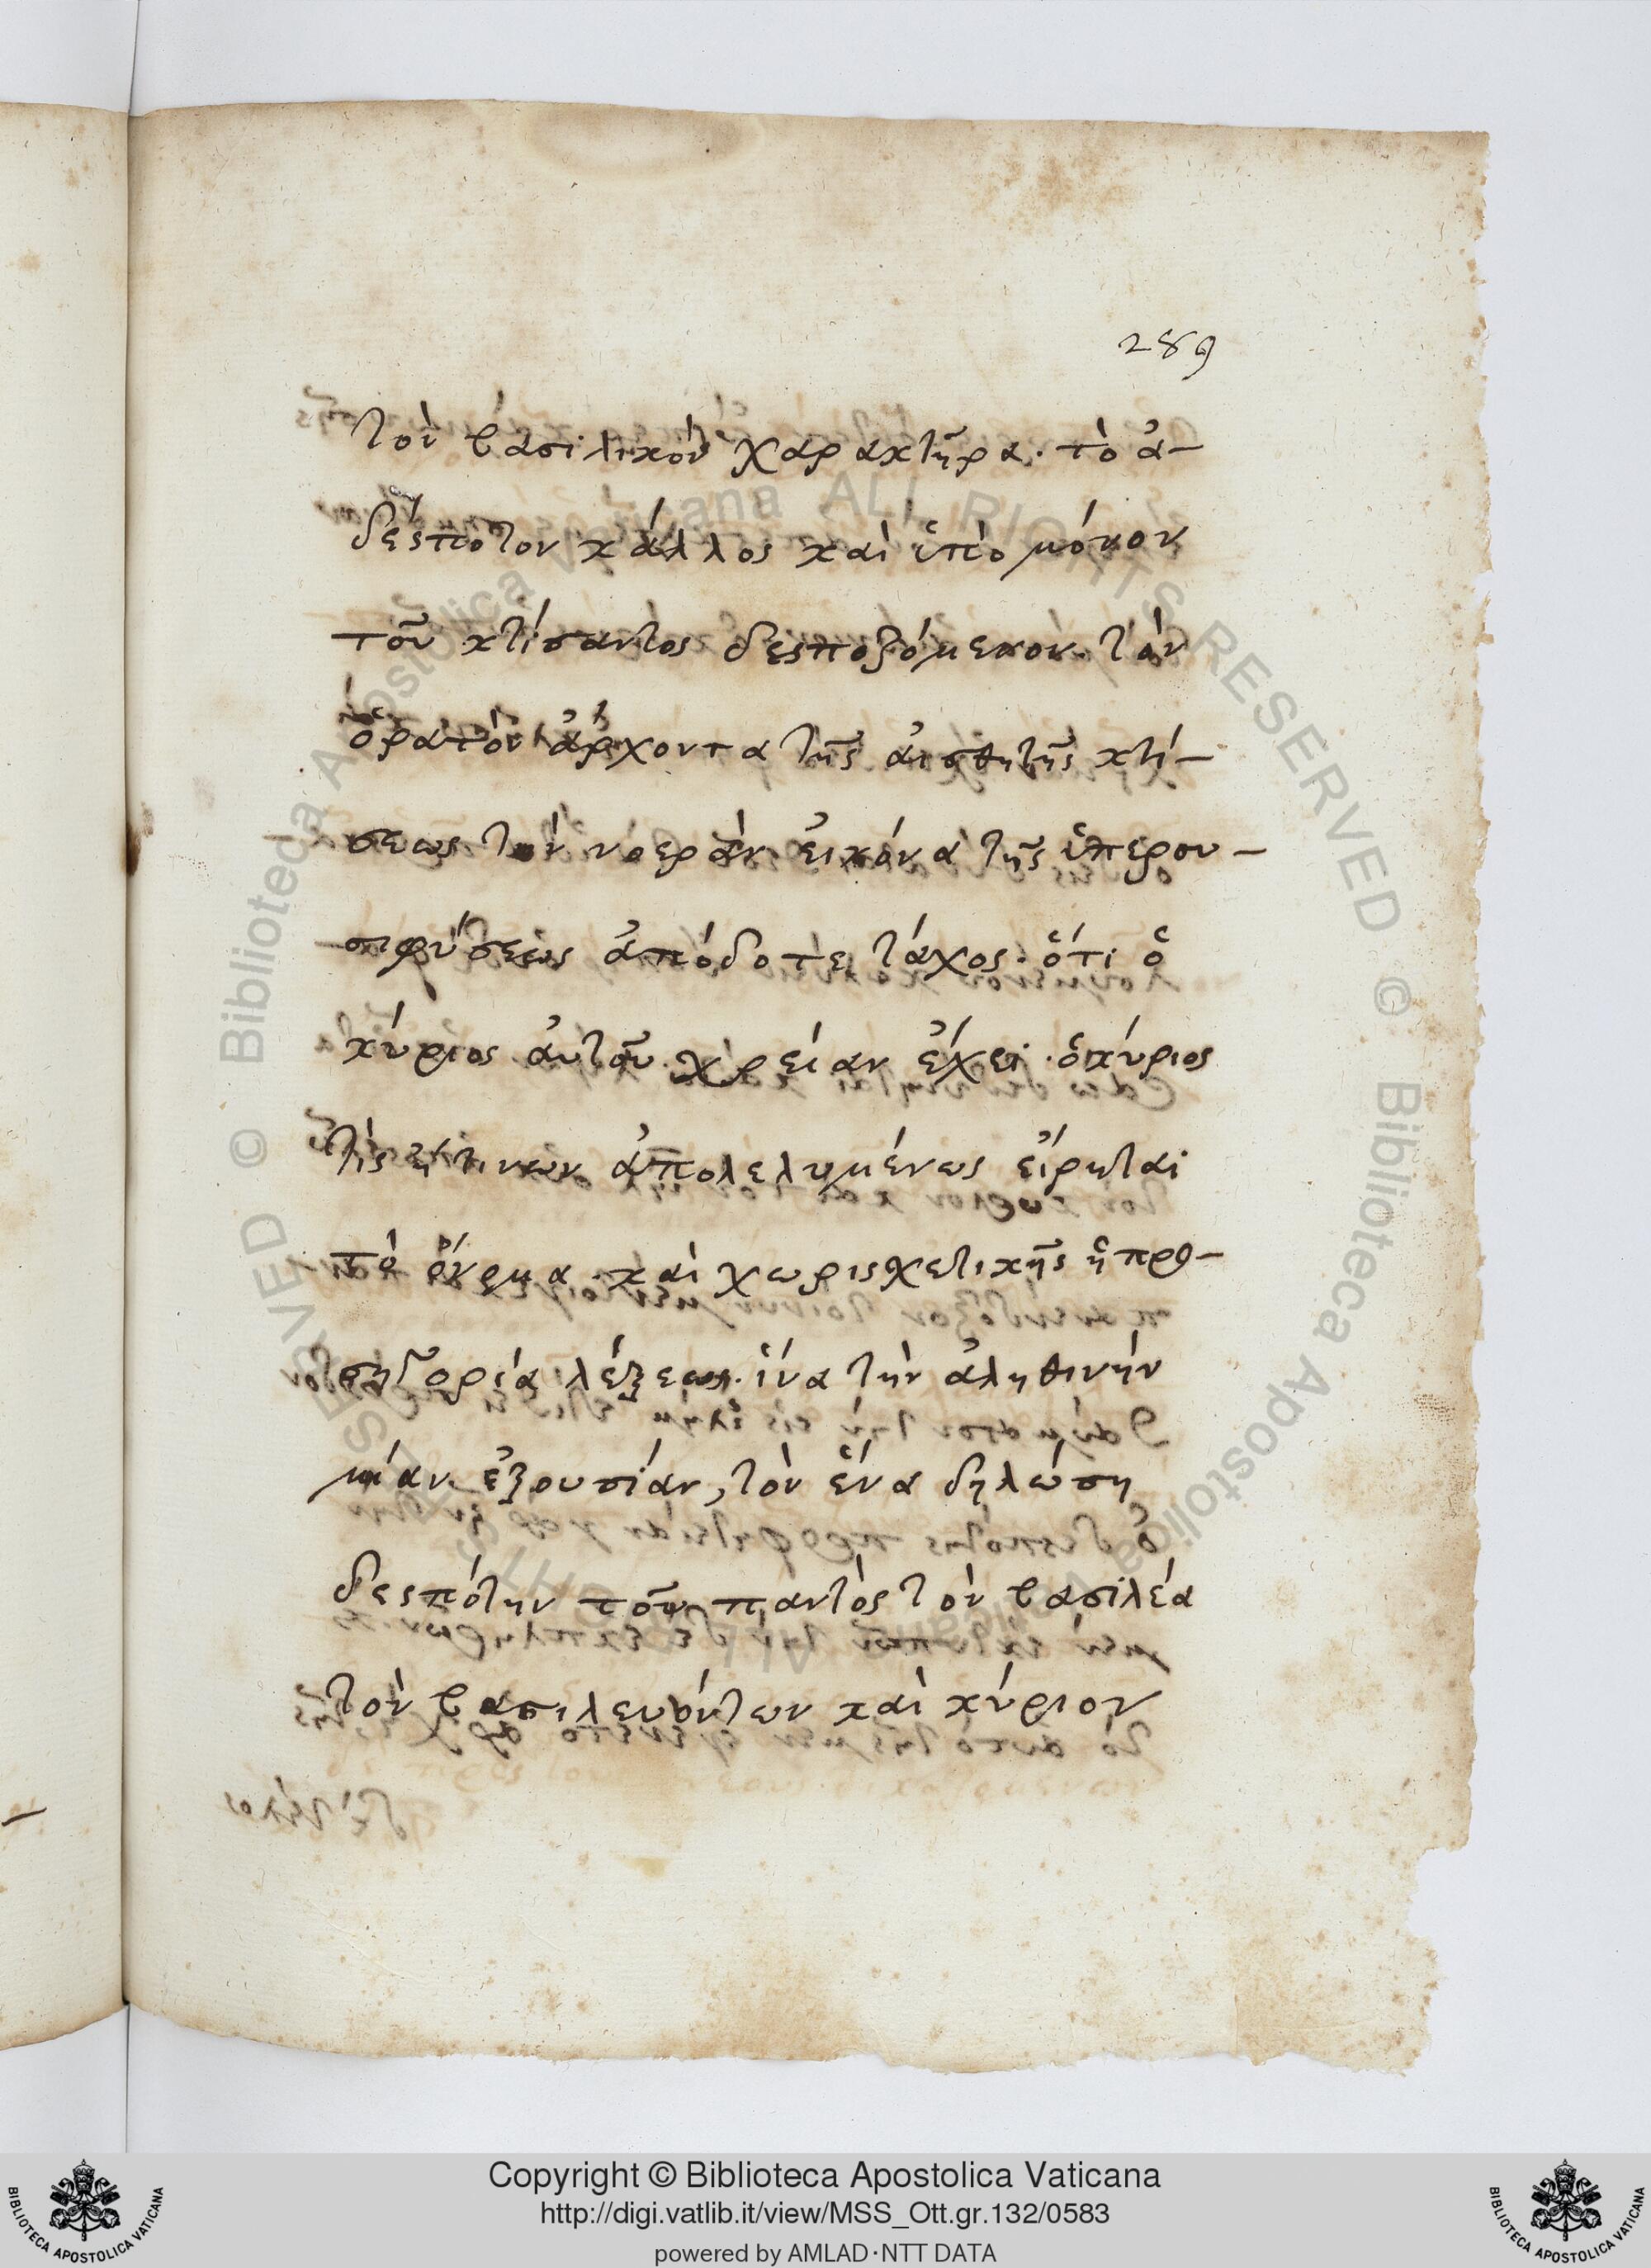 289
τὸν βασιλικὸν χαρακτῆρα· τὸ ἀ-
δέσποτον κάλλος καὶ ὑπὸ μόνον
τοῦ κτίσαντος δεσποζόμενον. τὸν
ὁρατὸν ἄρχοντα τῆς ἀισθητῆς κτί-
σεως τὴν νοερὰν ἐικόνα τῆς ὑπερου-
φύσεως ἀπόδοτε τάχος· ὅτι ὁ
κύριος ἀυτοῦ χρείαν ἔχει· ὁ κύριος
τίς ἢ τινων ἀπολελυμένως ἐίρηται
τὸ ὄνομα· καὶ χωρὶς χετικῆς ἢ προ-
σηγορία λέξεως· ἵνα τὴν ἀληθινὴν
μίαν ἐξουσίαν, τὸν ἕνα δηλώση
δεσπότην τοῦ παντὸς τὸν βασιλέα
τὸν βασιλευόντων καὶ κύριον
Copyright © Biblioteca Apostolica Vaticana
http://digi.vatlib.it/view/MSS_Ott.gr.132/0583
powered by AMLAD·NTT DATA
BIBLIOTECA APOSTOLICA VATICANA
BIBLIOTECA APOSTOLICA VATICANA